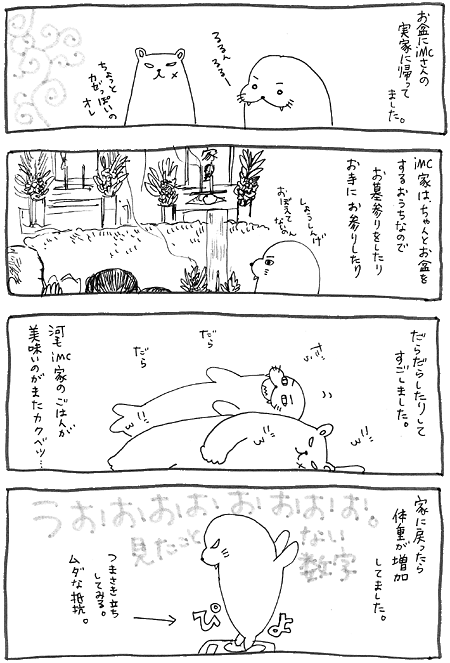 お盆にiMCさんの
実家に帰って
ました。
るるん
るるー
ちょっと
カがっぽいの
オレ
iMC家は、ちゃんとお盆を
するおうちなので
お墓参りをしたり
お寺にお参りしたり
しょうしんげ
おぼえて
ないのん
だらだらしたりして
すごしました。
だら
だら
河モiMC家のごはんが
美味いのがまたカクベツ…
家に戻ったら
体重が増加
してました。
うおおおおおおおお。
見たこと
ない
数字
つまさき立ち
してみる。
ムダな抵抗。
ぴよ